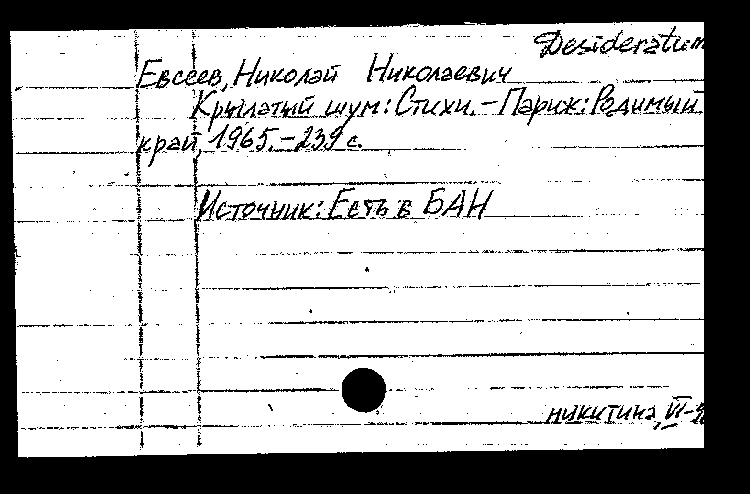 Desideratum
Евсеев, Николай Николаевич
Крылатый шум: Стихи. - Париж: Родимый
край, 1965. - 239 с.
Источник: Есть в БАН
никитина, VI-